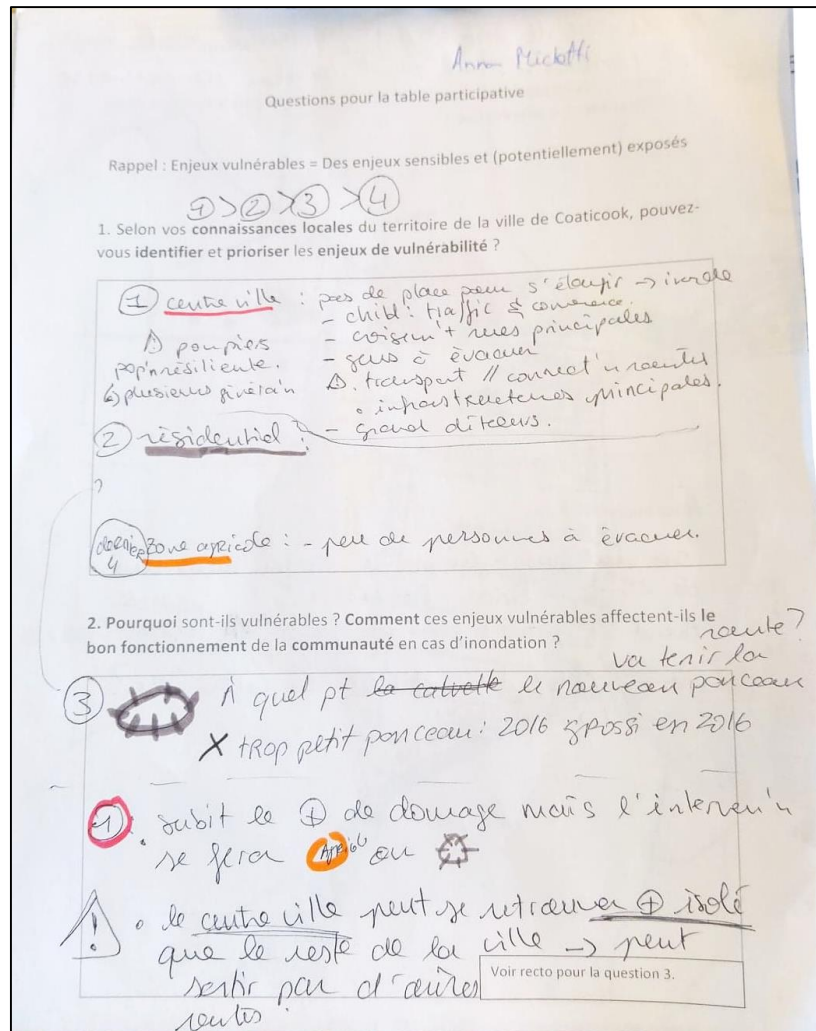 Anna
Questions pour la table participative
Rappel : Enjeux vulnérables = Des enjeux sensibles et (potentiellement) exposés
① > ② > ③ > ④
1. Selon vos connaissances locales du territoire de la ville de Coaticook, pouvez-
vous identifier et prioriser les enjeux de vulnérabilité ?
① centre ville : pas de place pour s'élargir →
- : traffic & commerce.
- croisem't rues principales
- gens à évacuer
⚠ pompiers
pop'n résiliente.
↳ plusieurs générat'n
⚠. transport // connect'n routes
• infrastructures principales.
② résidentiel ?
- grand
?
dernier 4 Zone agricole : - peu de personnes à évacuer.
2. Pourquoi sont-ils vulnérables ? Comment ces enjeux vulnérables affectent-ils le
bon fonctionnement de la communauté en cas d'inondation ?
③ À quel pt le nouveau ponceau
va tenir la route ?
X trop petit ponceau : 2016 grossi en 2016
① . subit le ⊕ de domage mais l'interven'n
se fera ou
⚠ • le centre ville peut se retrouver ⊕ isolé
que le reste de la ville → peut
sortir par d'autres
routes
Voir recto pour la question 3.